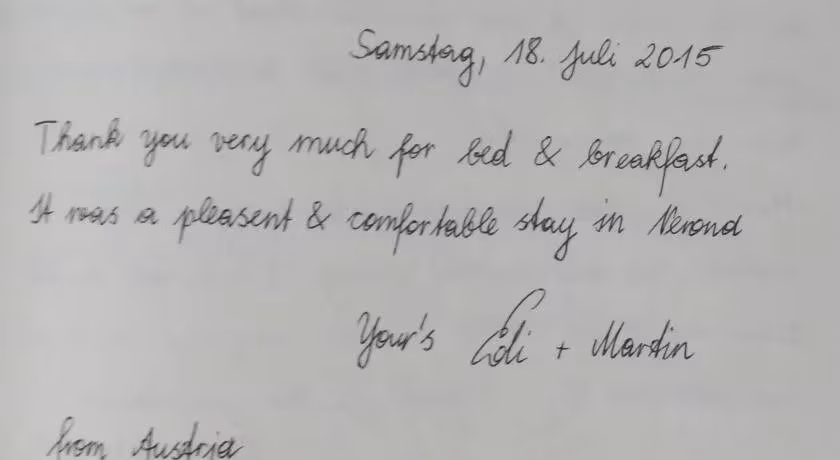 Samstag, 18. Juli 2015
Thank you very much for bed & breakfast.
It was a pleasent & comfortable stay in Nerond
Your's Edi + Martin
from Austria